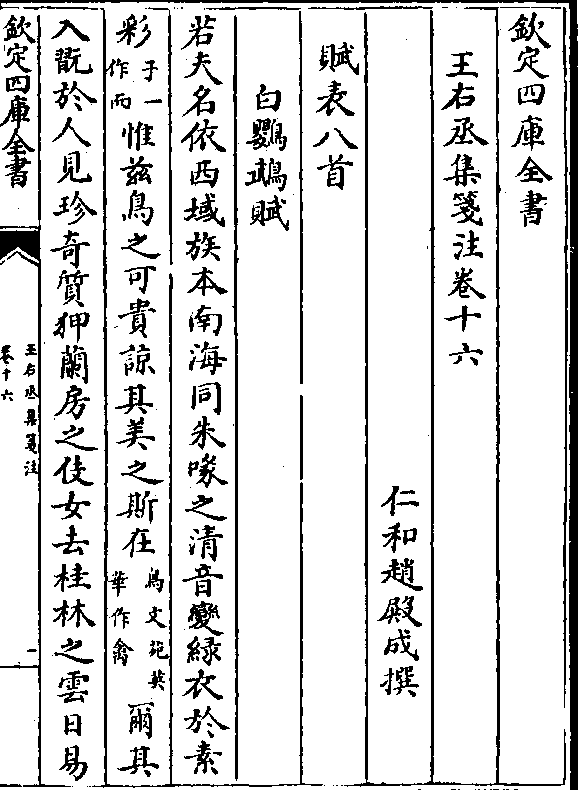 欽定四庫全書
王右丞集箋注卷十六
仁和趙殿成撰
賦表八首
白鸚鵡賦
若夫名依西域族本南海同朱喙之清音變緑衣於素
彩于一作而惟兹鳥之可貴諒其美之斯在鳥文苑英華作禽爾其
入翫於人見珍奇質狎蘭房之伎女去桂林之雲日易
欽定四庫全書
王右丞集箋注
卷十六
一